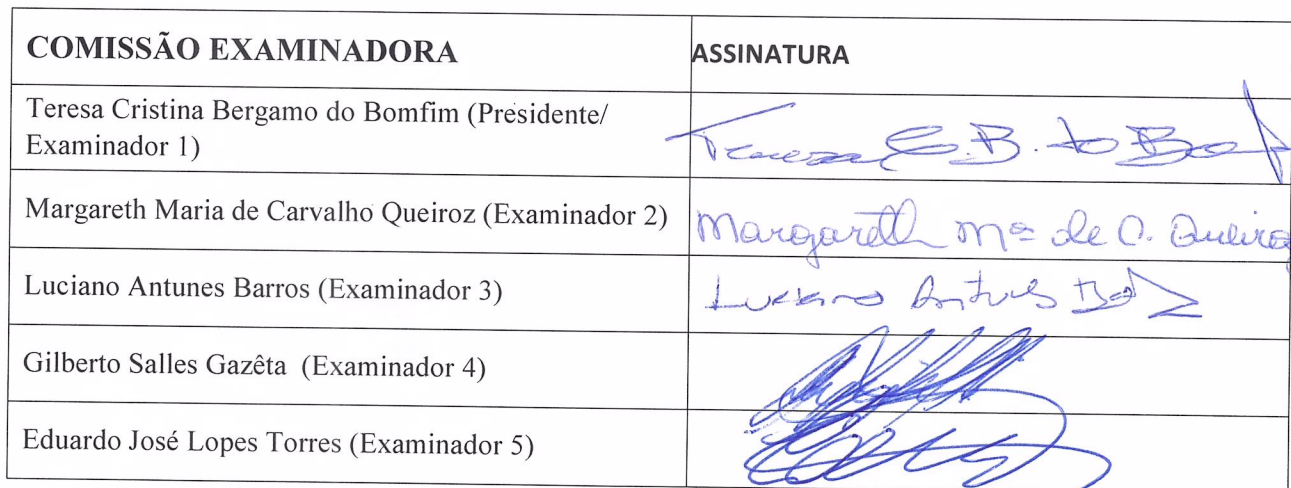 COMISSÃO EXAMINADORA ASSINATURA
Teresa Cristina Bergamo do Bomfim (Presidente/
Examinador 1)
Teresa C.B. do Bomf
Margareth Maria de Carvalho Queiroz (Examinador 2) Margareth Mª de C. Queiroz
Luciano Antunes Barros (Examinador 3) Luciano Antunes
Gilberto Salles Gazêta (Examinador 4)
Eduardo José Lopes Torres (Examinador 5)